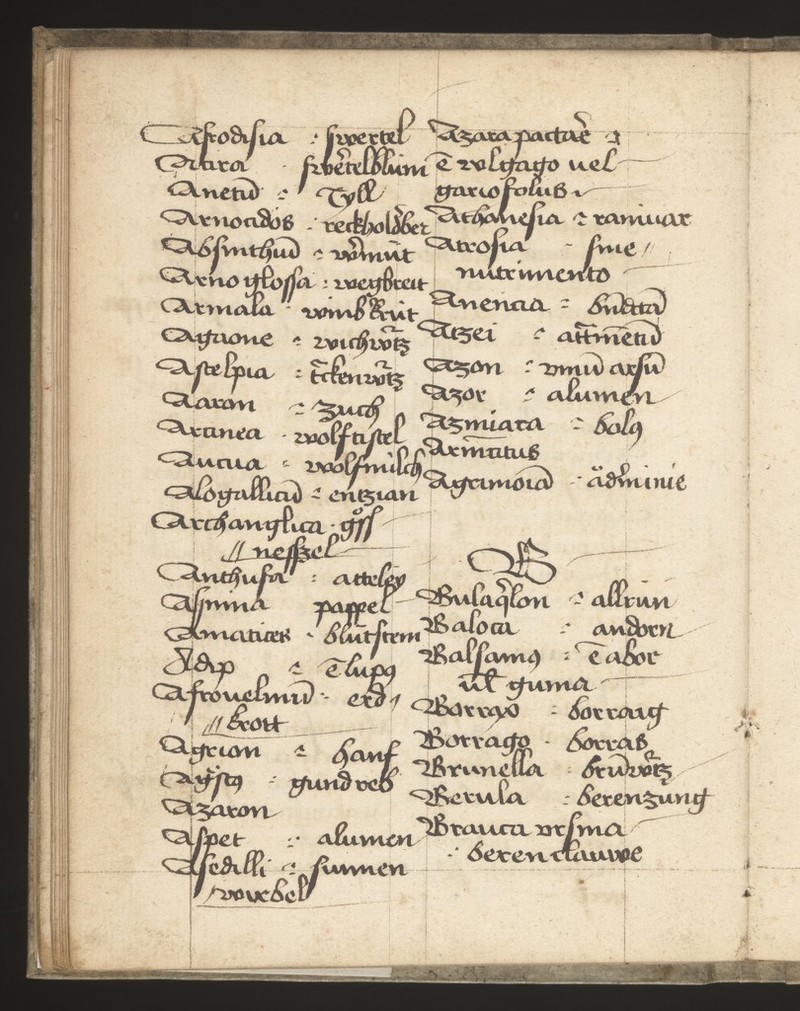 Afrodisia : swertel
Acara · swertelblum̄
Anetū : Tyll
Arnocidos · reckholdber
Absinthiū : wermůt
Arnoglossa : wegbreit
Armala · winbkrut
Agaone : wichwurtz
Astelpia : t̄ckenwurtz
Aaron : zuch
Arcinea · wolftistel
Aucua : wolfmilch
Alogallicū : entzian
Archanglica · groß
// nesszel
Anthufa : attelpy
Asinina pappel
Amatices · blůtstein
Adip : ē lupꝯ
Afrovelinū : erd
// brott
Agrion : hanf
Agstꝯ : gundreb
Azaron
Aspet : alumen
Asedilli : sunnen
wirbel
Azara pactaē
ē vulgago uel
gariofolus
Athanesia : rainuar
Atrosia · sine //
nutrimento
Anencia : bn̄dictā
Atzei : attm̄etū
Azon : vinū arsū
Azor : alumen
Azmiara : bolꝯ
Armatitus
Agrimoiā · ådm̄inie
B
Bulaqlon : allrun
Baloca : andorn
Balsamꝯ : ē abor
ul guma
Borrax : borraig
Borrago · borras
Brunella · brunwurtz
Berula : berenzung
Branca vrsina
· berenclauwe